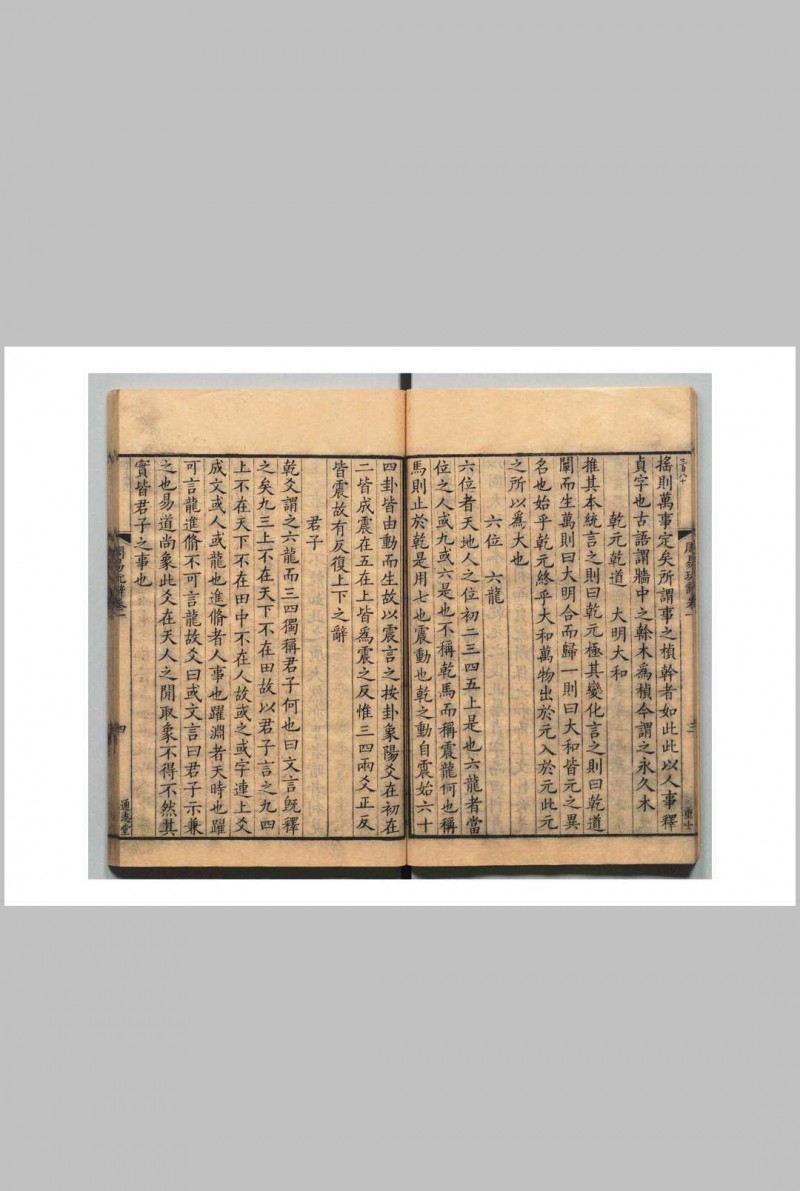 三百八十
搖則萬事定矣所謂事之楨幹者如此此以人事釋
貞字也古語謂牆中之榦木爲楨今謂之永久木
乾元乾道　大明大和
推其本統言之則曰乾元極其變化言之則曰乾道
闡而生萬則曰大明合而歸一則曰大和皆元之異
名也始乎乾元終乎大和萬物出於元入於元此元
之所以爲大也
六位　六龍
六位者天地人之位初二三四五上是也六龍者當
位之人或九或六是也不稱乾馬而稱震龍何也稱
馬則止於乾是用七也震動也乾之動自震始六十
四卦皆由動而生故以震言之按卦象陽爻在初在
二皆成震在五在上皆爲震之反惟三四兩爻正反
皆震故有反復上下之辭
君子
乾爻謂之六龍而三四獨稱君子何也曰文言旣釋
之矣九三上不在天下不在田故以君子言之九四
上不在天下不在田中不在人故或之或字連上爻
成文或人或龍也進脩者人事也躍淵者天時也躍
可言龍進脩不可言龍故爻曰或文言曰君子示兼
之也易道尚象此爻在天人之閒取象不得不然其
實皆君子之事也
四
通志堂